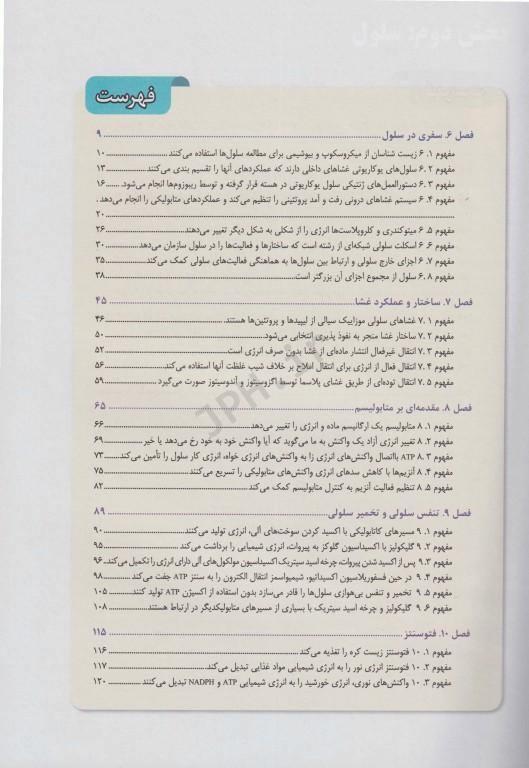 بخش دوم: سلول
فهرست
فصل ۶. سفری در سلول ........ ۹
مفهوم ۱. ۶ زیست شناسان از میکروسکوپ و بیوشیمی برای مطالعه سلول‌ها استفاده می‌کنند ........ ۱۰
مفهوم ۲. ۶ سلول‌های یوکاریوتی غشاهای داخلی دارند که عملکردهای آنها را تقسیم بندی می‌کنند ........ ۱۳
مفهوم ۳. ۶ دستورالعمل‌های ژنتیکی سلول یوکاریوتی در هسته قرار گرفته و توسط ریبوزوم‌ها انجام می‌شود. ........ ۱۶
مفهوم ۴. ۶ سیستم غشاهای درونی رفت و آمد پروتئینی را تنظیم می‌کند و عملکردهای متابولیکی را انجام می‌دهد .
........ ۲۰
مفهوم ۵. ۶ میتوکندری و کلروپلاست‌ها انرژی را از شکلی به شکل دیگر تغییر می‌دهند ........ ۲۶
مفهوم ۶. ۶ اسکلت سلولی شبکه‌ای از رشته است که ساختارها و فعالیت‌ها را در سلول سازمان می‌دهد ........ ۳۰
مفهوم ۷. ۶ اجزای خارج سلولی و ارتباط بین سلول‌ها به هماهنگی فعالیت‌های سلولی کمک می‌کند ........ ۳۵
مفهوم ۸. ۶ سلول از مجموع اجزای آن بزرگتر است ........ ۳۸
فصل ۷. ساختار و عملکرد غشا ........ ۴۵
مفهوم ۱. ۷ غشاهای سلولی موزاییک سیالی از لیپیدها و پروتئین‌ها هستند. ........ ۴۶
مفهوم ۲. ۷ ساختار غشا منجر به نفوذ پذیری انتخابی می‌شود ........ ۵۰
مفهوم ۳. ۷ انتقال غیرفعال انتشار ماده‌ای از غشا بدون صرف انرژی است ........ ۵۲
مفهوم ۴. ۷ انتقال فعال از انرژی برای انتقال املاح بر خلاف شیب غلظت آنها استفاده می‌کند ........ ۵۶
مفهوم ۵. ۷ انتقال توده‌ای از طریق غشای پلاسما توسط اگزوسیتوز و آندوسیتوز صورت می‌گیرد ........ ۵۹
فصل ۸. مقدمه‌ای بر متابولیسم ........ ۶۵
مفهوم ۱. ۸ متابولیسم یک ارگانیسم ماده و انرژی را تغییر می‌دهد ........ ۶۶
مفهوم ۲. ۸ تغییر انرژی آزاد یک واکنش به ما می‌گوید که آیا واکنش خود به خود رخ می‌دهد یا خیر ........ ۶۹
مفهوم ۳. ۸ ATP بااتصال واکنش‌های انرژی زا به واکنش‌های انرژی خواه، انرژی کار سلول را تأمین می‌کند ........ ۷۳
مفهوم ۴. ۸ آنزیم‌ها با کاهش سدهای انرژی واکنش‌های متابولیکی را تسریع می‌کنند ........ ۷۵
مفهوم ۵. ۸ تنظیم فعالیت آنزیم به کنترل متابولیسم کمک می‌کند ........ ۸۲
فصل ۹. تنفس سلولی و تخمیر سلولی ........ ۸۹
مفهوم ۱. ۹ مسیرهای کاتابولیکی با اکسید کردن سوخت‌های آلی، انرژی تولید می‌کنند ........ ۹۰
مفهوم ۲. ۹ گلیکولیز با اکسیداسیون گلوکز به پیروات، انرژی شیمیایی را برداشت می‌کند ........ ۹۵
مفهوم ۳. ۹ پس از اکسید شدن پیروات، چرخه اسید سیتریک اکسیداسیون مولکول‌های آلی دارای انرژی را تکمیل می‌کند. ........ ۹۶
مفهوم ۴. ۹ در حین فسفوریلاسیون اکسیداتیو، شیمیواسمز انتقال الکترون را به سنتز ATP جفت می‌کند ........ ۹۸
مفهوم ۵. ۹ تخمیر و تنفس بی‌هوازی سلول‌ها را قادر می‌سازد بدون استفاده از اکسیژن ATP تولید کنند. ........ ۱۰۵
مفهوم ۶. ۹ گلیکولیز و چرخه اسید سیتریک با بسیاری از مسیرهای متابولیکدیگر در ارتباط هستند ........ ۱۰۸
فصل ۱۰. فتوسنتز ........ ۱۱۵
مفهوم ۱. ۱۰ فتوسنتز زیست کره را تغذیه می‌کند ........ ۱۱۶
مفهوم ۲. ۱۰ فتوسنتز انرژی نور را به انرژی شیمیایی مواد غذایی تبدیل می‌کند ........ ۱۱۷
مفهوم ۳. ۱۰ واکنش‌های نوری، انرژی خورشید را به انرژی شیمیایی ATP و NADPH تبدیل می‌کنند ........ ۱۲۰
JPH.ir